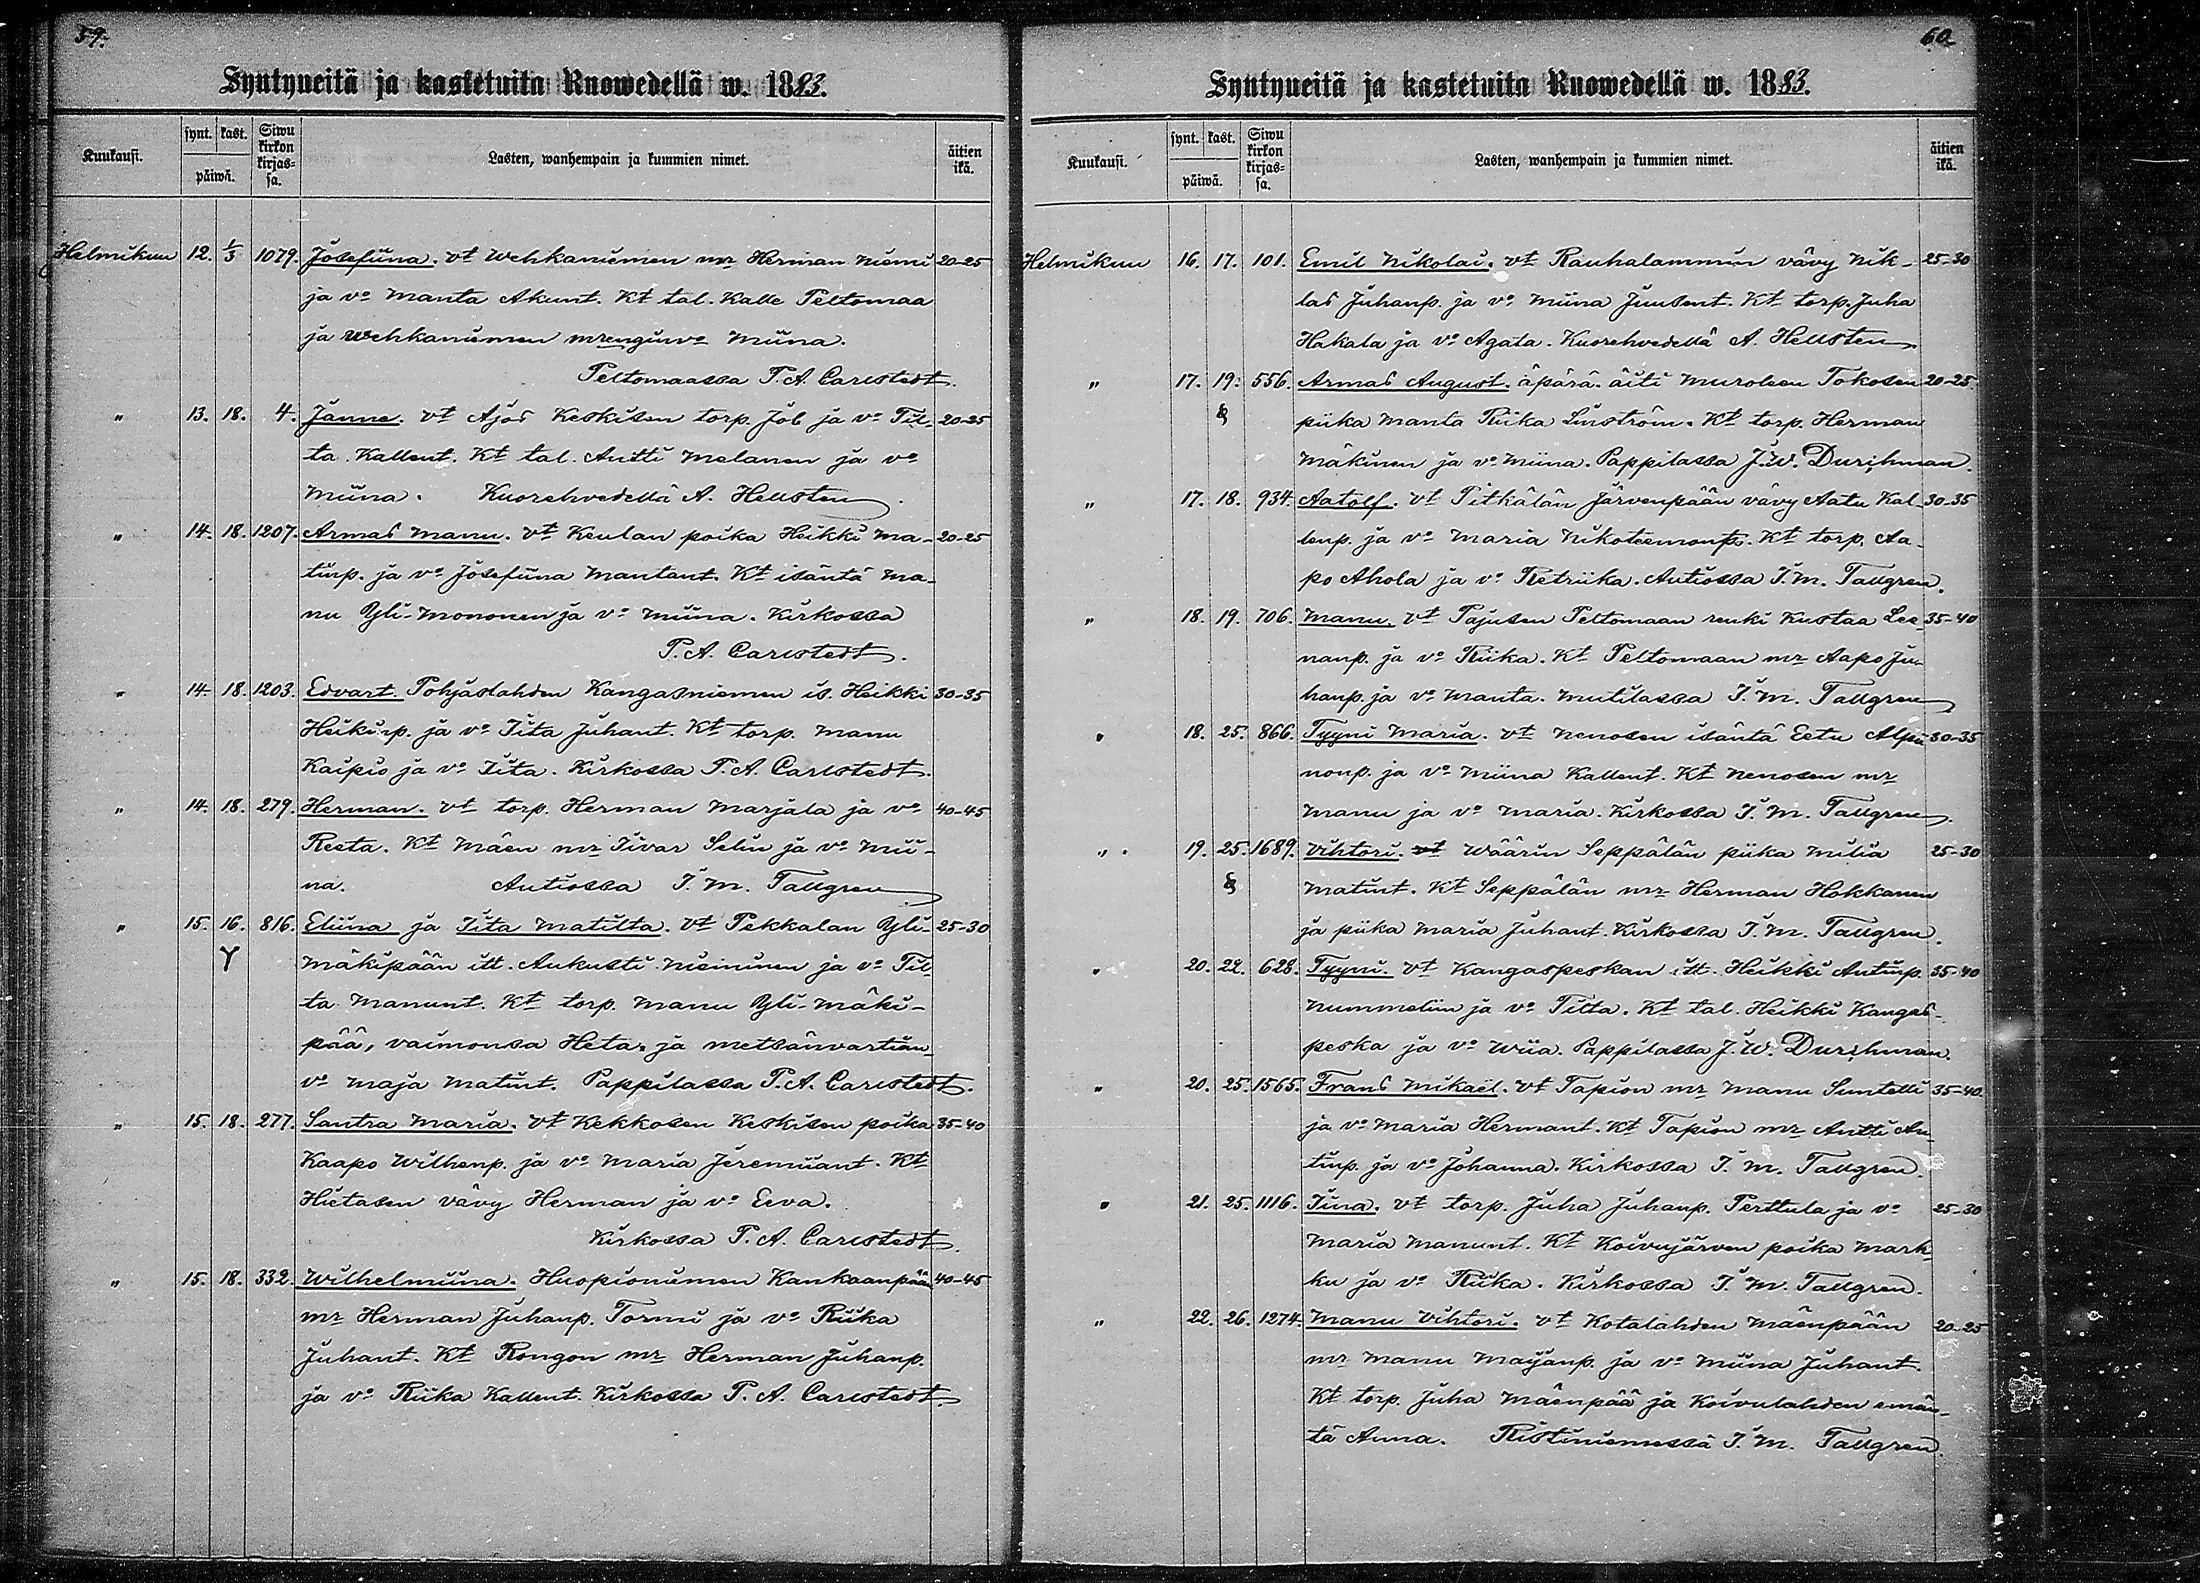 59.
Syntyneitä ja kastetuita Ruowedellä w. 1883.
Kuukausi. synt. kast. päiwä. Siwu kirkon kirjas- sa. Lasten, wanhempain ja kummien nimet. äitien ikä.
Helmikuu 12. 1/3 1079. Josefiina. vt Wehkaniemen mr Herman Niemi 20-25
ja vo Manta Akunt. Kt tal. Kalle Peltomaa
ja Wehkaniemen mrenginvo Miina.
Peltomaassa T. A. Carlstedt.
" 13. 18. 4. Janne. vt Ajos Keskisen torp. Job ja vo Til- 20-25
ta Kallent. Kt tal. Antti Melanen ja vo
Miina. Kuorehvedellä A. Hellsten.
" 14. 18. 1207. Armas Manu. vt Keulan poika Heikki Ma- 20-25
tinp. ja vo Josefiina Mantant. Kt isäntä Ma-
nu Yli-Mononen ja vo Miina. Kirkossa
T. A. Carlstedt.
" 14. 18. 1203. Edvart. Pohjaslahden Kangasniemen is. Heikki 30-35
Heikinp. ja vo Iita Juhant. Kt torp. Manu
Kaipio ja vo Iita. Kirkossa T. A. Carlstedt.
" 14. 18. 279. Herman. vt torp. Herman Marjala ja vo 40-45
Reeta. Kt Mäen mr Iivar Selin ja vo Mii-
na. Autiossa I. M. Tallgren
" 15. 16. 816. Eliina ja Iita Matilta. vt Pekkalan Yli- 25-30
Y Mäkipään itt. Aukusti Nieminen ja vo Til-
ta Manunt. Kt torp. Manu Yli-Mäki-
pää, vaimonsa Heta, ja metsänvartian
vo Maja Matint. Pappilassa T. A. Carlstedt.
" 15. 18. 277. Santra Maria. vt Kekkosen Keskisen poika 35-40
Kaapo Wilhenp. ja vo Maria Jeremiiant. Kt
Hietasen vävy Herman ja vo Eeva.
Kirkossa T. A. Carlstedt.
" 15. 18. 332. Wilhelmiina. Huopioniemen Kankaanpään 40-45
mr Herman Juhanp. Tormi ja vo Riika
Juhant. Kt Rongon mr Herman Juhanp.
ja vo Riika Kallent. Kirkossa T. A. Carlstedt.
60.
Syntyneitä ja kastetuita Ruowedellä w. 1883.
Kuukausi. synt. kast. päiwä. Siwu kirkon kirjas- sa. Lasten, wanhempain ja kummien nimet. äitien ikä.
Helmikuu 16. 17. 101. Emil Nikolai. vt Rauhalammin vävy Nik- 25-30
las Juhanp. ja vo Miina Juusent. Kt torp. Juha
Hakala ja vo Agata. Kuorehvedellä A. Hellsten.
" 17. 19. 556. Armas August. äpärä. äiti Muroleen Tokosen 20-25.
piika Manta Riika Linström. Kt torp. Herman
Mäkinen ja vo Miina. Pappilassa J. W. Durchman.
" 17. 18. 934. Aatolf. vt Pitkälän Järvenpään vävy Aatu Kal- 30-35
lenp. ja vo Maria Nikoteemont. Kt torp. Aa-
po Ahola ja vo Retriika. Autiossa I. M. Tallgren.
" 18. 19. 706. Manu. vt Pajusen Peltomaan renki Kustaa Lee- 35-40
nanp. ja vo Riika. Kt Peltomaan mr Aapo Ju-
hanp. ja vo Manta. Mutilassa I. M. Tallgren
" 18. 25. 866. Tyyni Maria. vt Nenosen isäntä Eetu Alpii- 30-35
nonp. ja vo Miina Kallent. Kt Nenosen mr
Manu ja vo Maria. Kirkossa I. M. Tallgren.
" 19. 25. 1689. Vihtori. vt Wäärin Seppälän piika Milia 25-30
Matint. Kt Seppälän mr Herman Hokkanen
ja piika Maria Juhant. Kirkossa I. M. Tallgren.
" 20. 22. 628. Tyyni. vt Kangaspeskan itt. Heikki Antinp. 35-40
Nummeliin ja vo Tilta. Kt tal. Heikki Kangas-
peska ja vo Wiia. Pappilassa J. W. Durchman.
" 20. 25. 1565. Frans Mikaël. vt Tapion mr Manu Suntelli 35-40.
ja vo Maria Hermant. Kt Tapion mr Antti An-
tinp. ja vo Johanna. Kirkossa I. M. Tallgren.
" 21. 25. 1116. Iina. vt torp. Juha Juhanp. Perttula ja vo 25-30
Maria Manunt. Kt Koivujärven poika Mark-
ku ja vo Riika. Kirkossa I. M. Tallgren.
" 22. 26. 1274. Manu Vihtori. vt Kotalahden Mäenpään 20-25
mr Manu Majanp. ja vo Miina Juhant.
Kt torp. Juha Mäenpää ja Koivulahden emän-
tä Anna. Ristiniemessä I. M. Tallgren.